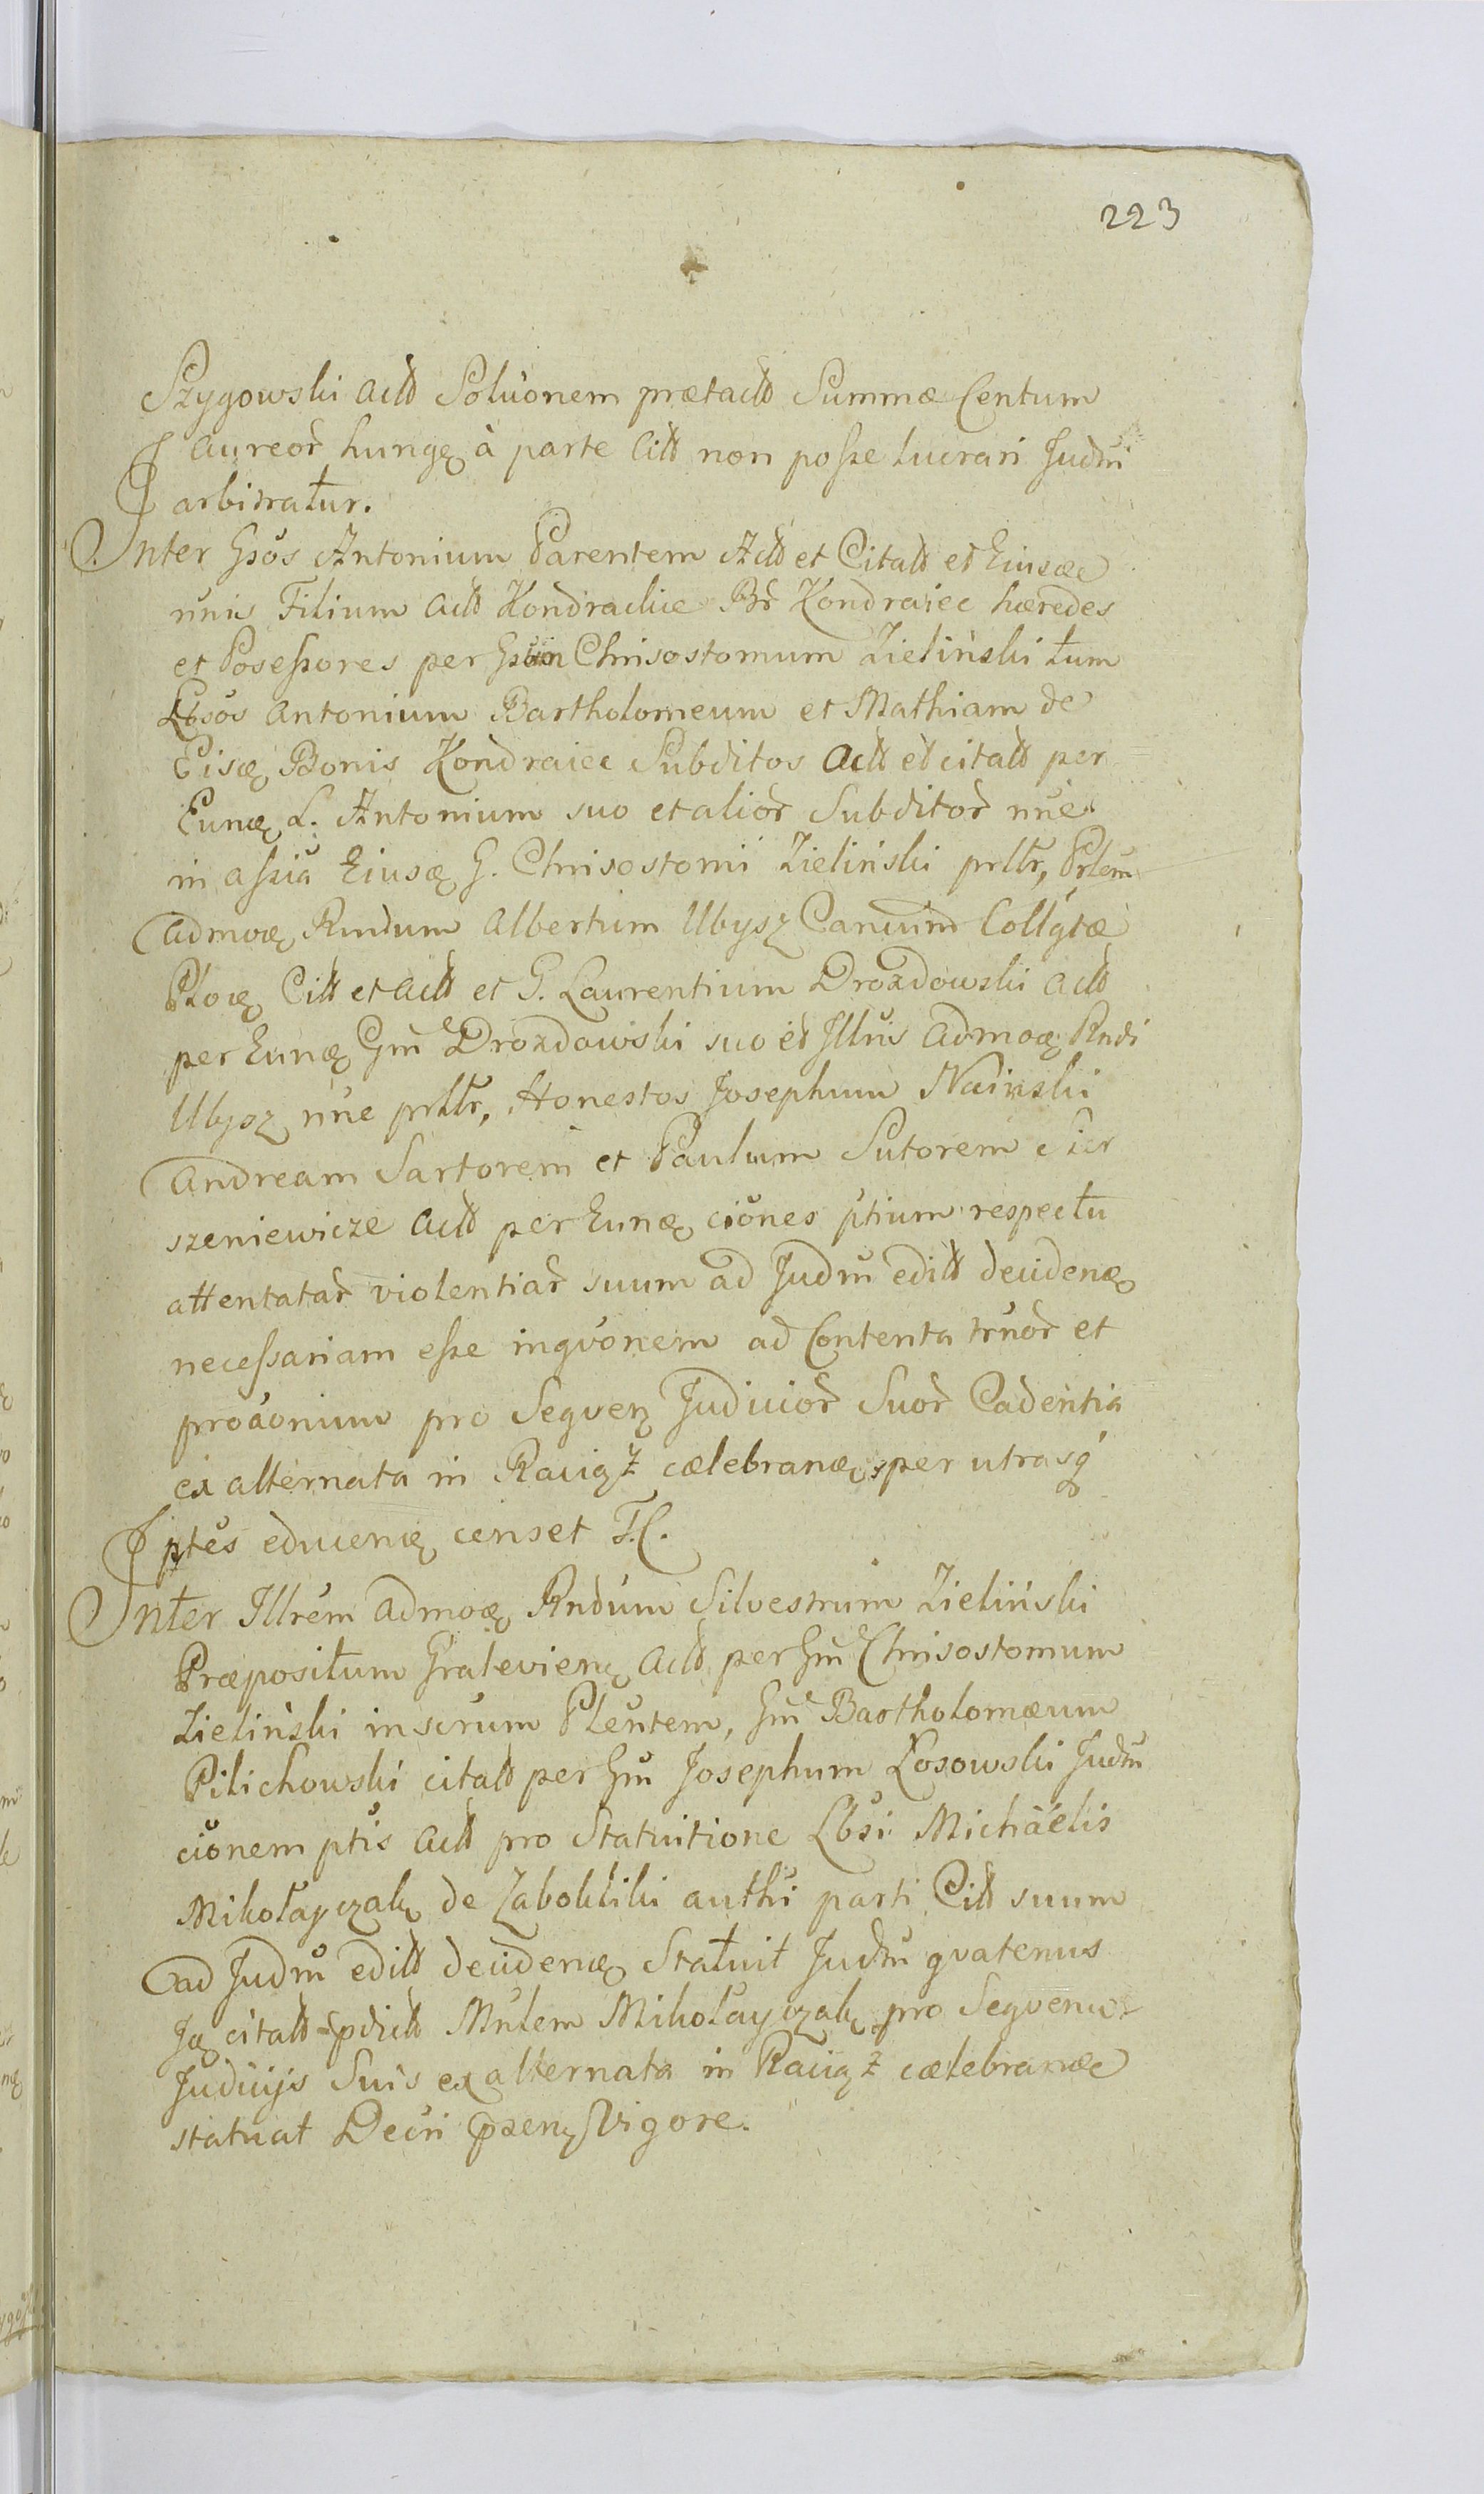 223
Szygowski actt Soluonem prætactt Summæ Centum
aureor hungq à parte Citt non posse lucrari Judm
arbitratur.
Inter Gsos Antonium Parentem Actt et Citatt et Eiusæ
unis Filium actt Kondrackie Br Kondraiec hæredes
et Posessores per Chrisostomum Zielinski tum
Lbsos Antonium Bartholomeum et Mathiam de
Eisæ Bonis Kondraiec Subditos actt et citatt per
Eunæ L. Antonium suo et alior Subditor nne
in assia Eiusæ G. Chrisostomi Zieliński prltr,
admoæ Rndum Albertum Ubysz Canum Collgtæ
Citt et actt et G. Laurentium Drozdowski actt
per Eunæ Gm Drozdowski suo et Illris admoæ Rndi
Ubysz nne prltr, Honestos Josephum
Andream Sartorem et Paulum Sutorem
szeniewicze actt per Eunæ ciones ptium respectu
attentatar violentiar suum ad Judm editt decidenæ
necessariam esse inqvonem ad Contenta trnor et
proaonium pro Seqven Judicior Suor Cadentia
ex alternata in Raciąż cælebranæ per utrasq
ptes educenæ censet T.C.
Inter Illrem admoæ Rndum Silvestrum Zieliński
Præpositum Gralevien actt per Gm Chrisostomum
Zieliński inscrum Plentem, Gm Bartholomæum
Pilichowski citatt per Gm Josephum Kosowski Judm
cionem ptis actt pro Statuitione Lbsi Michaëlis
Mikołayczak de Zabokliki authi parti Citt suum
ad Judm editt decidenæ Statuit Judm qvatenus
citatt pdictt Mnlem Mikołayczak pro Seqven
Judicijs Suis ex alternata in Raciąż cælebranæ
statuat Decri pzen Vigore.